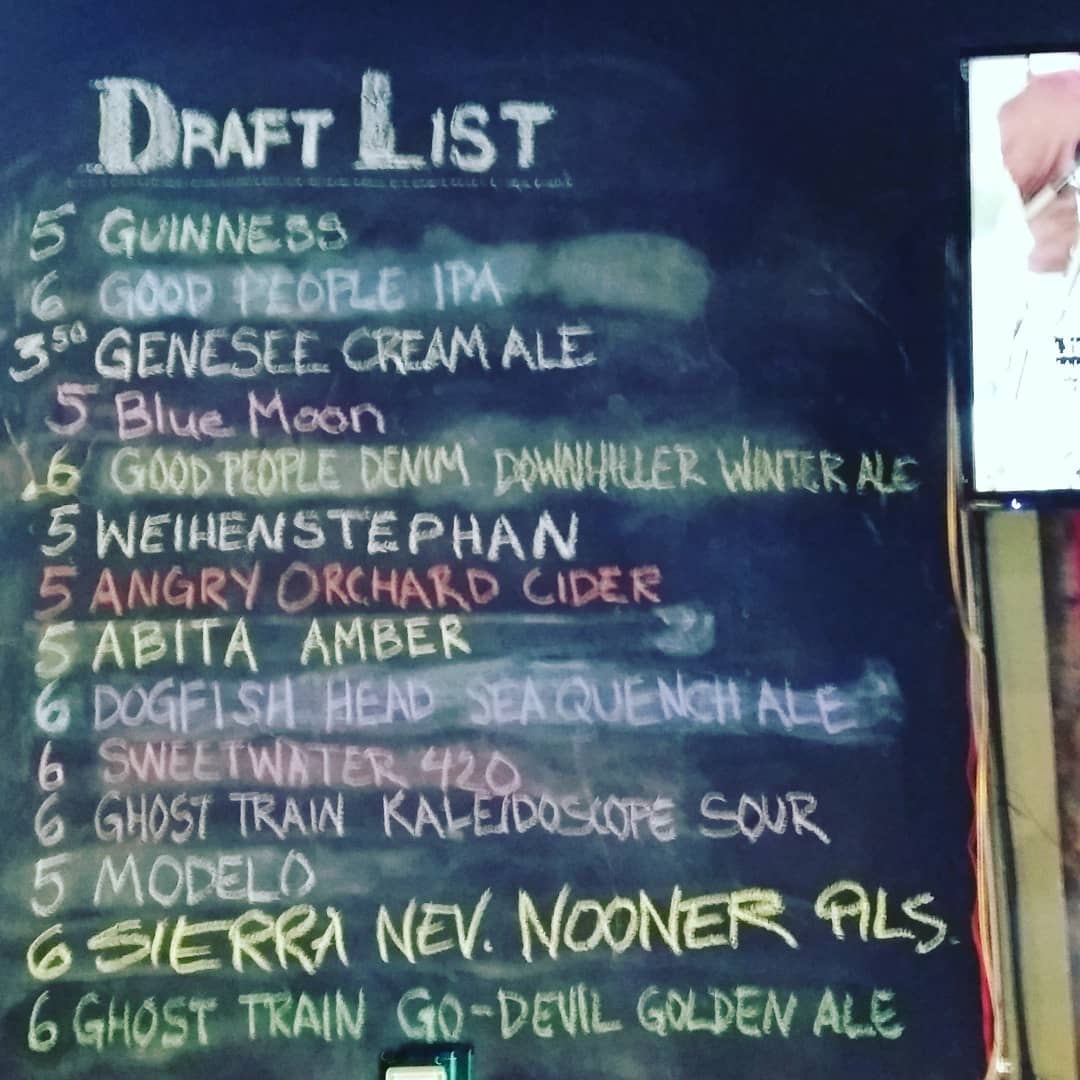 DRAFT LIST
5 GUINNESS
6 GOOD PEOPLE IPA
3⁵⁰ GENESEE CREAM ALE
5 Blue Moon
6 GOOD PEOPLE DENIM DOWNHILLER WINTER ALE
5 WEIHENSTEPHAN
5 ANGRY ORCHARD CIDER
5 ABITA AMBER
6 DOGFISH HEAD SEAQUENCH ALE
6 SWEETWATER 420
6 GHOST TRAIN KALEIDOSCOPE SOUR
5 MODELO
6 SIERRA NEV. NOONER PILS.
6 GHOST TRAIN GO-DEVIL GOLDEN ALE